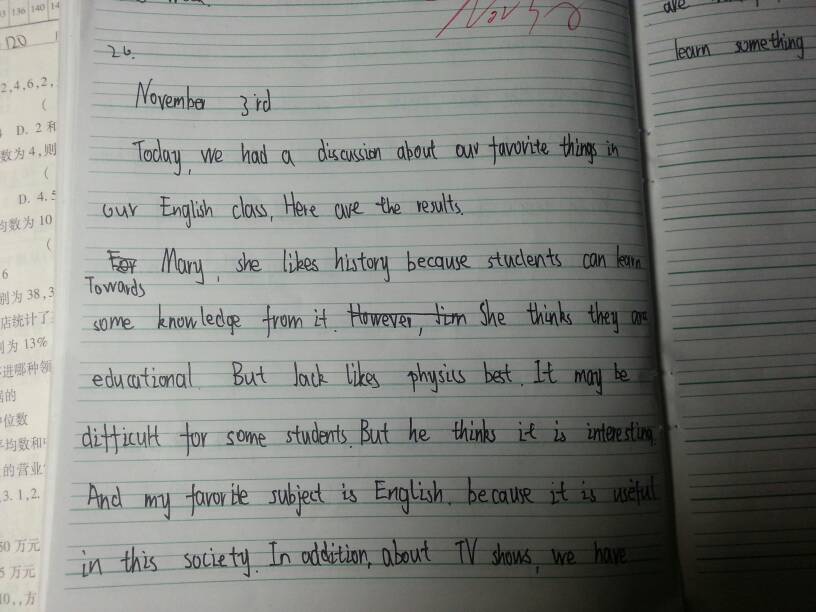 136 140 14
120
2,4,6,2,
(
D. 2 和
数为 4,则
(
D. 4.5
均数为 10
(
6
别为 38,3
店统计了
别为 13%
进哪种领
据的
中位数
平均数和
的营业
3.1,2.
50 万元
5 万元
10.,方
Nov 3
26.
November 3rd
Today, we had a discussion about our favorite things in
our English class, Here are the results.
For Mary, she likes history because students can learn
Towards
some knowledge from it. However, Jim She thinks they are
educational. But Jack likes physics best. It may be
difficult for some students. But he thinks it is interesting.
And my favorite subject is English. because it is useful
in this society. In addition, about TV shows, we have
are
learn something